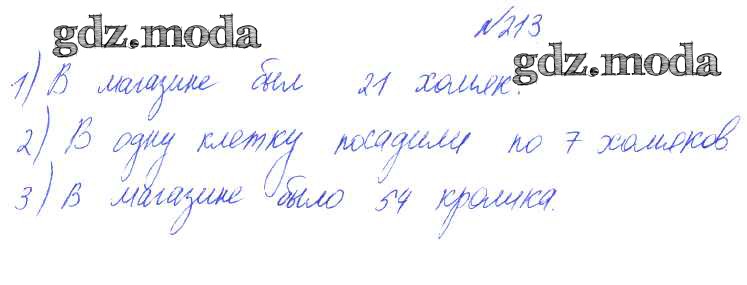 №213
gdz.moda
gdz.moda
1) В магазине был 21 хомяк.
2) В одну клетку посадили по 7 хомяков
3) В магазине было 54 кролика.